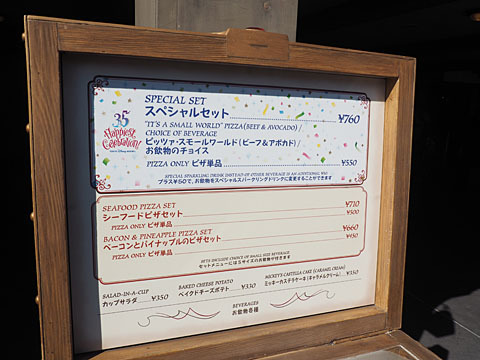 35
Happiest
Celebration!
TOKYO DISNEY RESORT
SPECIAL SET
スペシャルセット ¥760
"IT'S A SMALL WORLD" PIZZA (BEEF & AVOCADO) /
CHOICE OF BEVERAGE
ピッツァ・スモールワールド(ビーフ&アボカド)/
お飲物のチョイス
PIZZA ONLY ピザ単品 ¥550
SPECIAL SPARKLING DRINK INSTEAD OF OTHER BEVERAGE IS AN ADDITIONAL ¥50
プラス¥50で、お飲物をスペシャルスパークリングドリンクに変更することができます
SEAFOOD PIZZA SET ¥710
シーフードピザセット
PIZZA ONLY ピザ単品 ¥500
BACON & PINEAPPLE PIZZA SET ¥660
ベーコンとパイナップルのピザセット
PIZZA ONLY ピザ単品 ¥450
SETS INCLUDE CHOICE OF SMALL SIZE BEVERAGE
セットメニューにはSサイズのお飲物が付きます
SALAD-IN-A-CUP
カップサラダ ¥350
BAKED CHEESE POTATO
ベイクドチーズポテト ¥330
MICKEY'S CASTELLA CAKE (CARAMEL CREAM)
ミッキーカステラケーキ(キャラメルクリーム) ¥350
BEVERAGES
お飲物各種